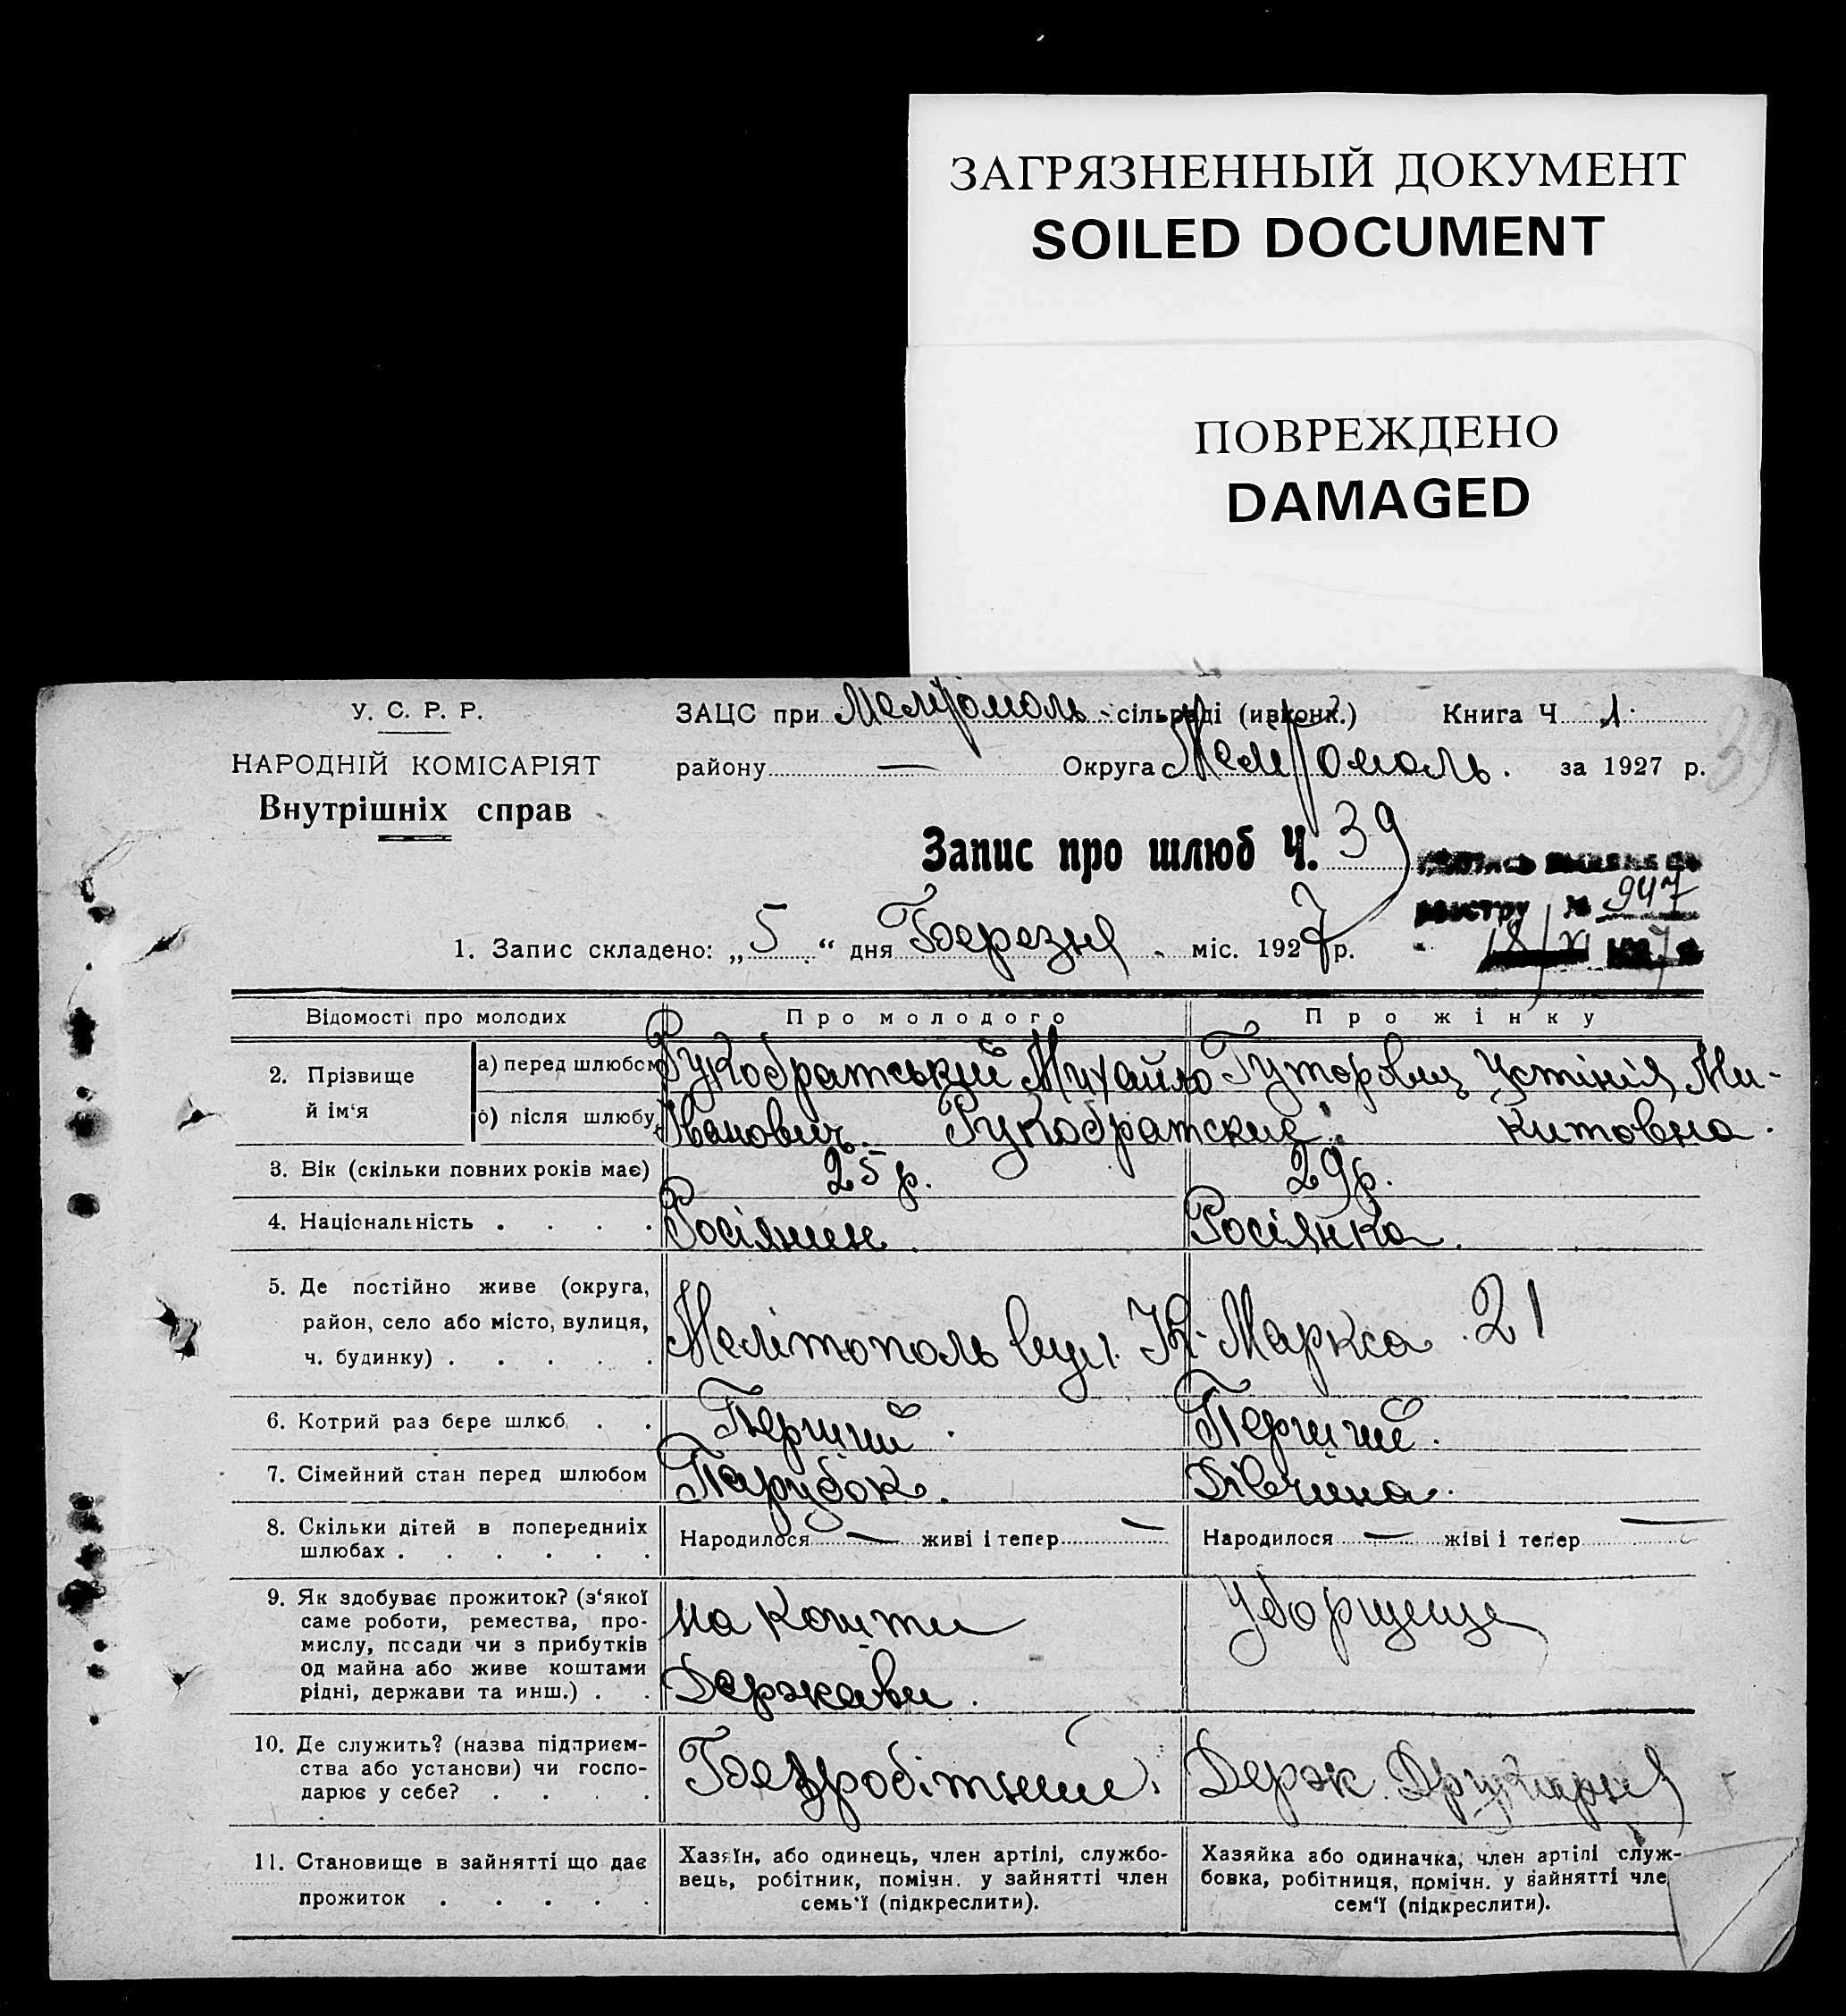 ЗАГРЯЗНЕННЫЙ ДОКУМЕНТ
SOILED DOCUMENT
ПОВРЕЖДЕНО
DAMAGED
У. С. Р. Р.
НАРОДНІЙ КОМІСАРІЯТ
Внутрішніх справ
ЗАЦС при Мелітополь сільраді (ивконк.) Книга Ч 1.
району — Округа Мелітополь. за 1927 р.
39
Запис про шлюб Ч. 39
реєстру № 947
18/XI 1927
1. Запис складено: „5“ дня Березня міс. 1927 р.
Відомості про молодих Про молодого Про жінку
2. Прізвище й ім‘я
а) перед шлюбом Рукобратський Михайло Гуторович Устінія Ми-
б) після шлюбу Іванович. Рукобратские. китовна.
3. Вік (скільки повних років має) 25 р. 29 р.
4. Національність . . . . Росіянин. Росіянка.
5. Де постійно живе (округа,
район, село або місто, вулиця,
ч. будинку) . . . . .
Мелітополь вул. К. Маркса 21
6. Котрий раз бере шлюб . . Перший. Перший.
7. Сімейний стан перед шлюбом Парубок. Дівчина.
8. Скільки дітей в попередниіх
шлюбах . . . . . .
Народилося — живі і тепер — Народилося — жіві і тепер —
9. Як здобуває прожиток? (з‘якої
саме роботи, ремества, про-
мислу, посади чи з прибутків
од майна або живе коштами
рідні, держави та инш.) . .
на кошти
Держави.
Уборщица
10. Де служить? (назва підприєм-
ства або установи) чи госпо-
дарює у себе? . . . .
Безробітний. Держ. Друкарня
11. Становище в зайнятті що дає
прожиток . . . . .
Хазяїн, або одинець, член артілі, службо-
вець, робітник, помічн. у зайнятті член
семь‘ї (підкреслити).
Хазяйка або одиначка, член артілі служ-
бовка, робітниця, помічн. у зайнятті чле
сем‘ї (підкреслити).